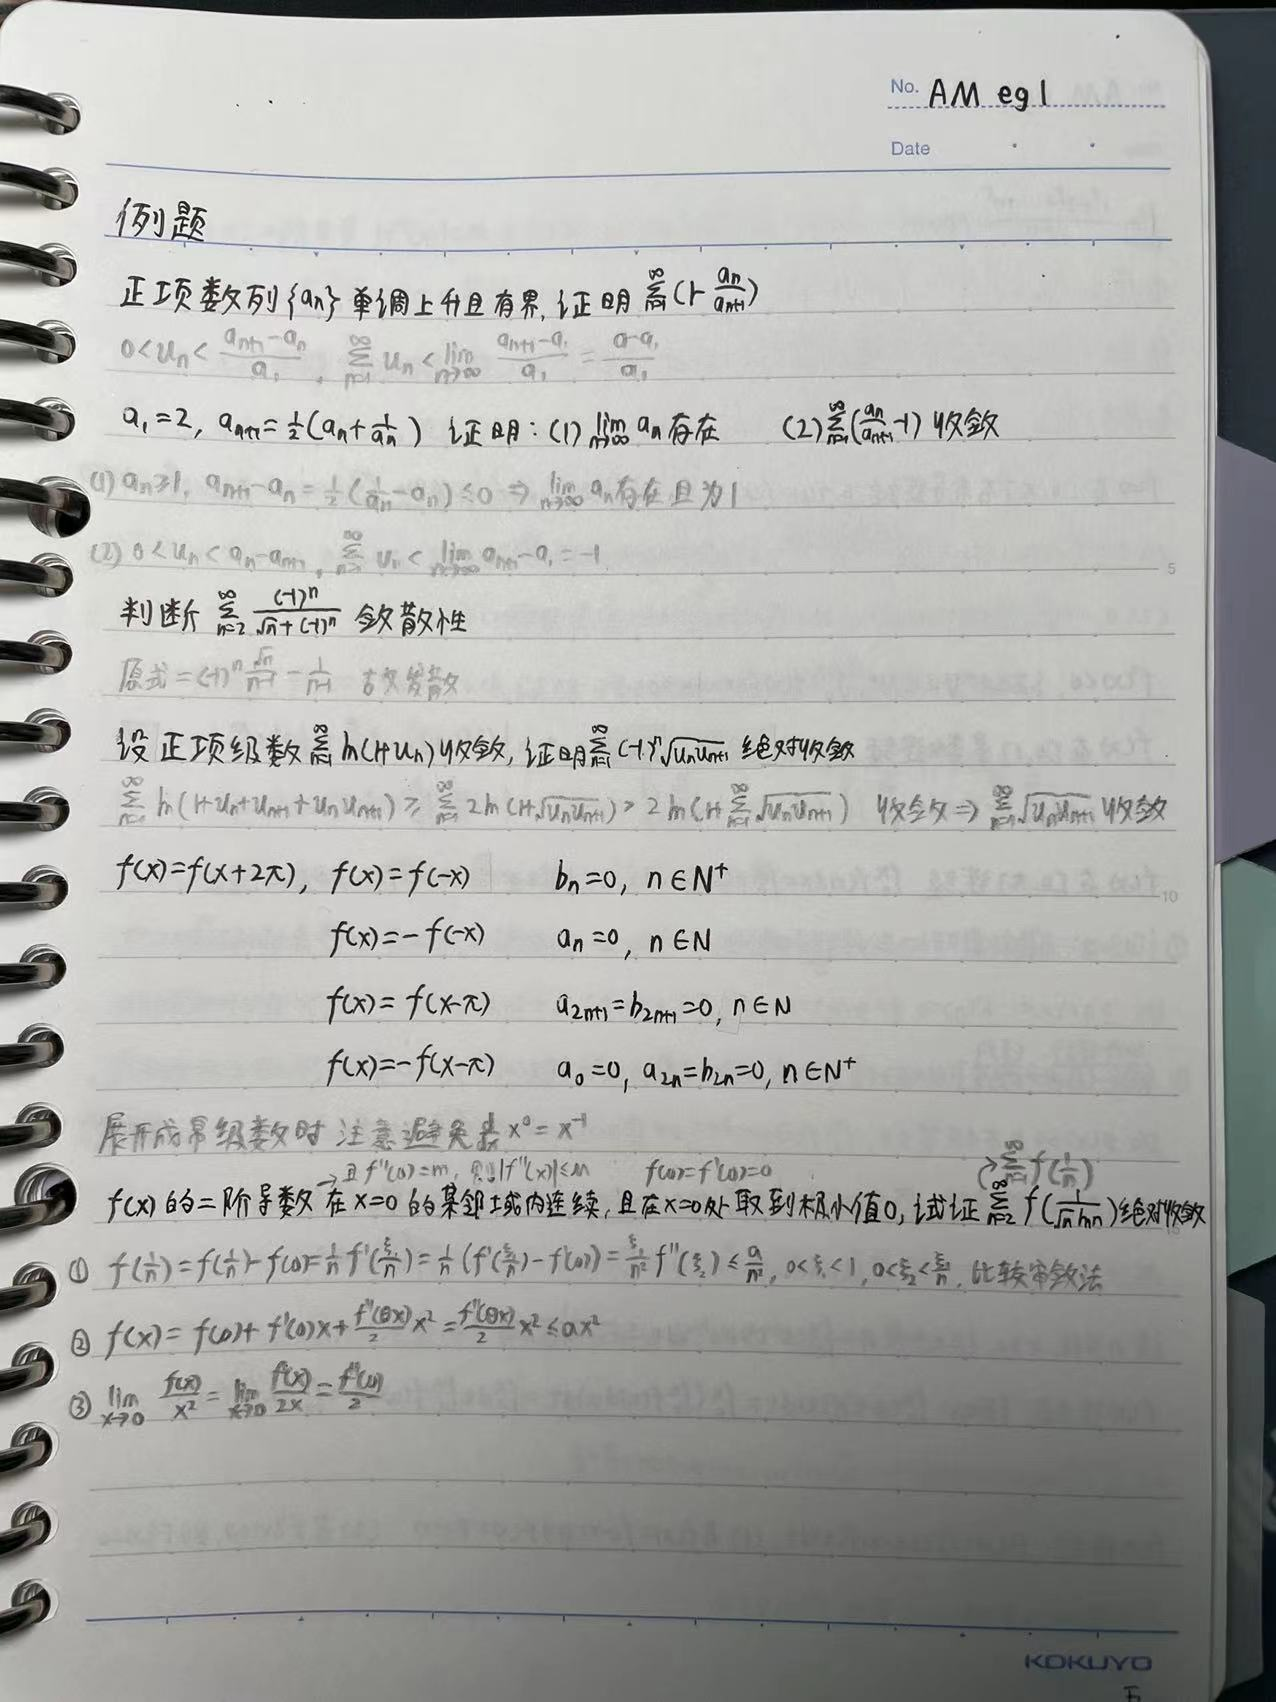 No. AM eg1
Date
例题
正项数列{aₙ}单调上升且有界,证明 ∑_{n=1}^{∞}(1-aₙ/aₙ₊₁)
0<uₙ<(aₙ₊₁-aₙ)/a₁, ∑_{n=1}^{∞}uₙ<lim_{n→∞}(aₙ₊₁-a₁)/a₁=(a-a₁)/a₁
a₁=2, aₙ₊₁=½(aₙ+1/aₙ) 证明:(1)lim_{n→∞}aₙ存在 (2)∑_{n=1}^{∞}(aₙ/aₙ₊₁-1)收敛
(1) aₙ≥1, aₙ₊₁-aₙ=½(1/aₙ-aₙ)≤0 ⇒ lim_{n→∞}aₙ存在且为1
(2) 0<uₙ<aₙ-aₙ₊₁, ∑_{n=1}^{∞}uₙ<lim_{n→∞}aₙ₊₁-a₁=-1
判断 ∑_{n=2}^{∞}(-1)ⁿ/(√n+(-1)ⁿ) 敛散性
原式=(-1)ⁿ√n/(n-1)-1/(n-1) 故发散
设正项级数∑_{n=1}^{∞}ln(1+uₙ)收敛,证明∑_{n=1}^{∞}(-1)ⁿ√(uₙuₙ₊₁)绝对收敛
∑_{n=1}^{∞}ln(1+uₙ+uₙ₊₁+uₙuₙ₊₁)≥∑_{n=1}^{∞}2ln(1+√(uₙuₙ₊₁))>2ln(1+∑_{n=1}^{∞}√(uₙuₙ₊₁)) 收敛⇒∑_{n=1}^{∞}√(uₙuₙ₊₁)收敛
f(x)=f(x+2π), f(x)=f(-x) bₙ=0, n∈N⁺
f(x)=-f(-x) aₙ=0, n∈N
f(x)=f(x-π) a₂ₙ₊₁=b₂ₙ₊₁=0, n∈N
f(x)=-f(x-π) a₀=0, a₂ₙ=b₂ₙ=0, n∈N⁺
展开成幂级数时 注意避免 d/dx x⁰=x⁻¹
→且f''(0)=m, 则|f''(x)|≤M f(0)=f'(0)=0 →∑_{n=1}^{∞}f(1/n)
f(x)的二阶导数在x=0的某邻域内连续,且在x=0处取到极小值0,试证∑_{n=2}^{∞}f(1/(√n ln n))绝对收敛
① f(1/n)=f(1/n)-f(0)=1/n f'(ξ₁/n)=1/n(f'(ξ₁/n)-f'(0))=ξ₁/n² f''(ξ₂)≤a/n², 0<ξ₁<1, 0<ξ₂<ξ₁/n, 比较审敛法
② f(x)=f(0)+f'(0)x+f''(θx)/2 x²=f''(θx)/2 x²≤ax²
③ lim_{x→0} f(x)/x²=lim_{x→0} f'(x)/2x=f''(0)/2
KOKUYO